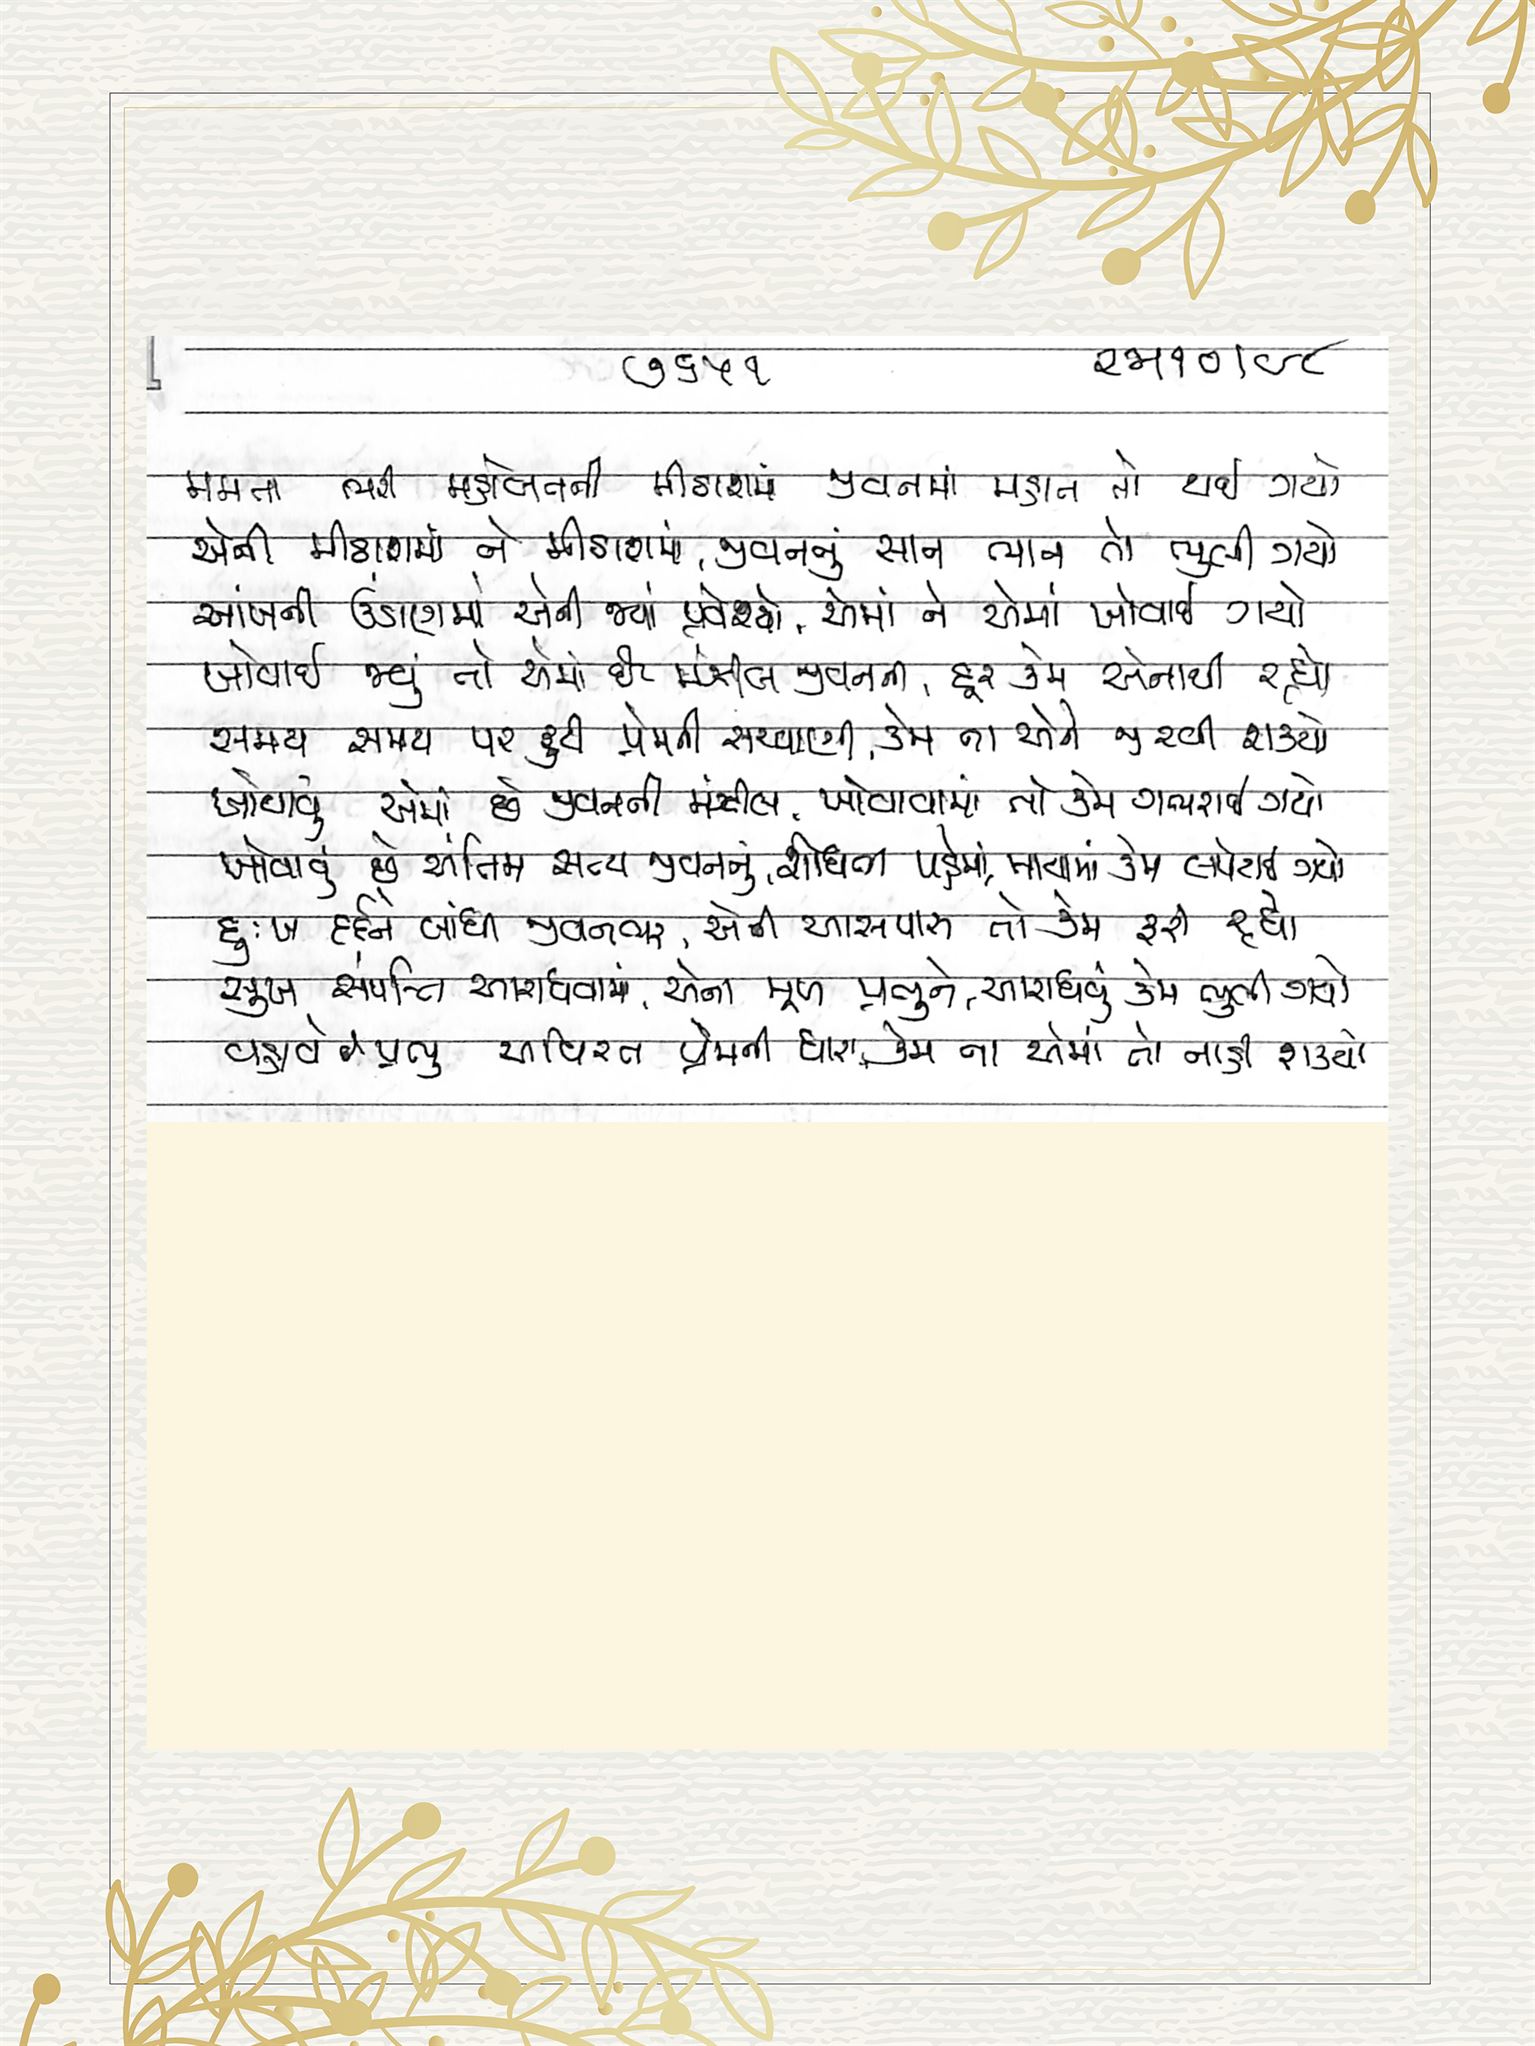 ૭૬૫૧
મમતા ભરી મહોબતની મીઠાશમાં જીવનમાં મહાન તો થઈ ગયો
એની મીઠાશમાં ને મીઠાશમાં, જીવનનું સાન ભાન તો ભુલી ગયો
આંખની ઉંડાણમાં એની જ્યાં પ્રવેશ્યો, એમાં ને એમાં ખોવાઈ ગયો
ખોવાઈ જવું તો એમાં છે મંઝીલ જીવનની, દૂર કેમ એનાથી રહ્યો
સમય સમય પર ફુટી પ્રેમની સરવાણી, કેમ ના એને જીરવી શક્યો
ખોવાવું એમાં છે જીવનની મંઝીલ, ખોવાવામાં તો કેમ ગભરાઈ ગયો
ખોવાવું છે અંતિમ સત્ય જીવનનું, શોધની પહેમાં, માયામાં કેમ લપેટાઈ ગયો
દુઃખ દર્દને બાંધી જીવનભર, એની આસપાસ તો કેમ ફરી રહ્યો
સુખ સંપત્તિ આરાધવામાં, એના મૂળ પ્રભુને, આરાધવું કેમ ભુલી ગયો
વહાવે છે પ્રભુ અવિરત પ્રેમની ધારા, કેમ ના એમાં તો નાહી શક્યો